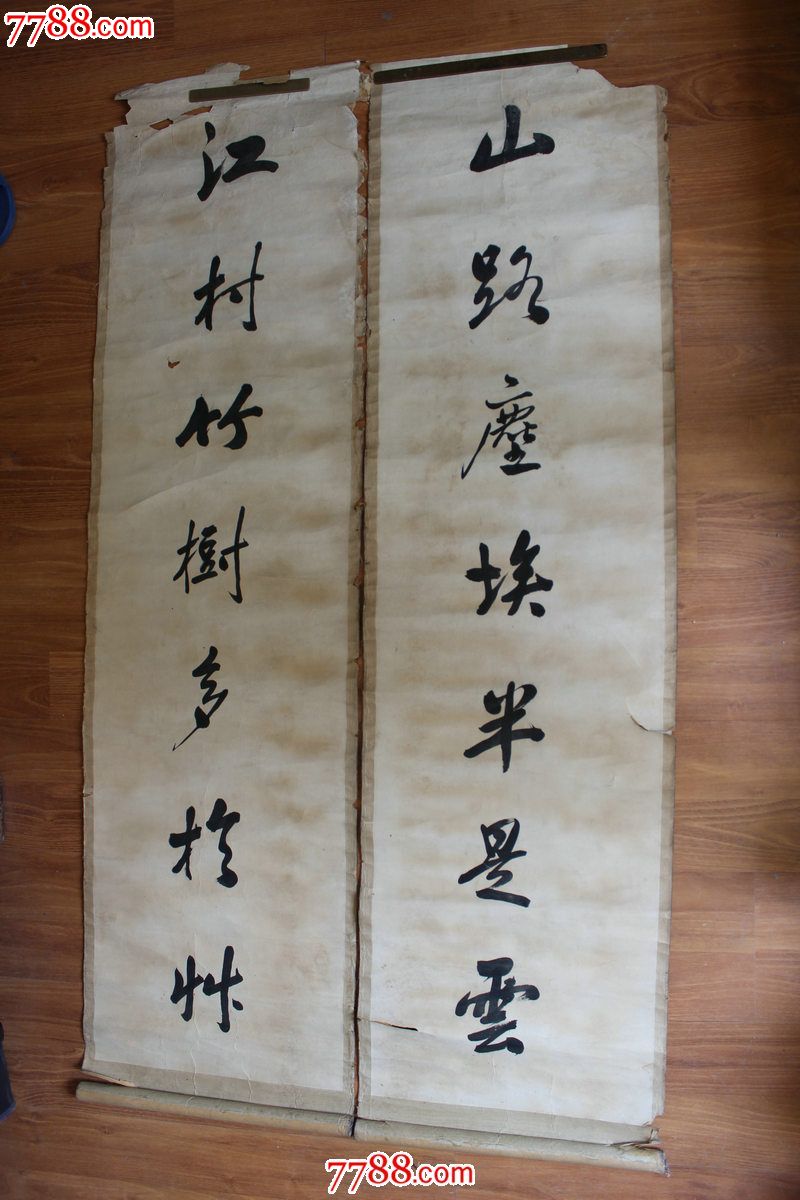 7788.com
7788.com
山路塵埃半是雲
江村竹樹多於艸
7788.com